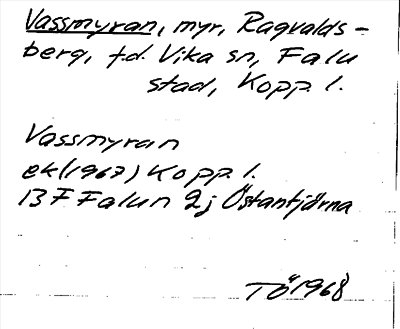 Vassmyran, myr, Ragvalds-
berg, f.d. Vika sn, Falu
stad, Kopp. l.
Vassmyran
ek (1967) Kopp. l.
13 F Falun 2j Östantjärna
TÖ 1968